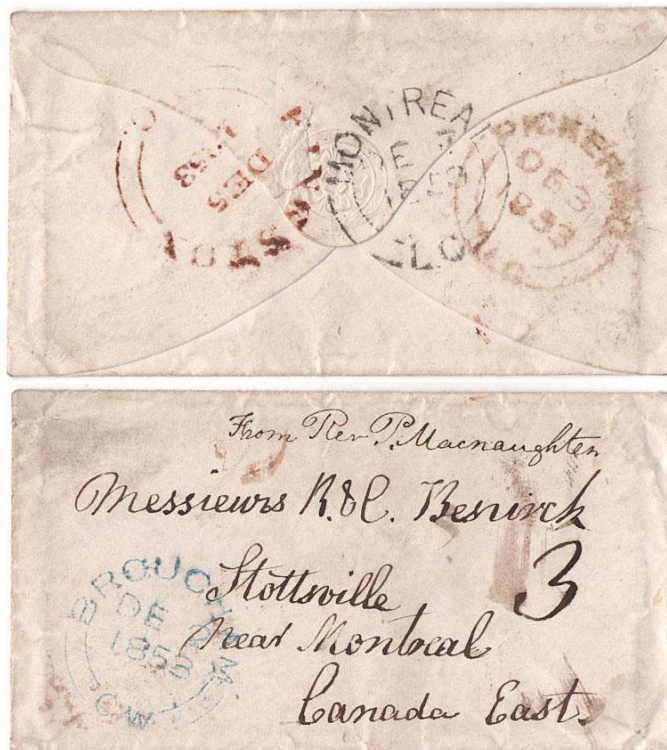 KINGSTON
DE 5
1853
C
MONTREAL
DE 7
1853
L.C
PICKERING
DE 3
1853
U.C
From Rev P. Macnaughten
Messieurs R. & C.
3
Stottsville
near Montreal
Canada East.
BROUGHAM
DE
1853
C.W